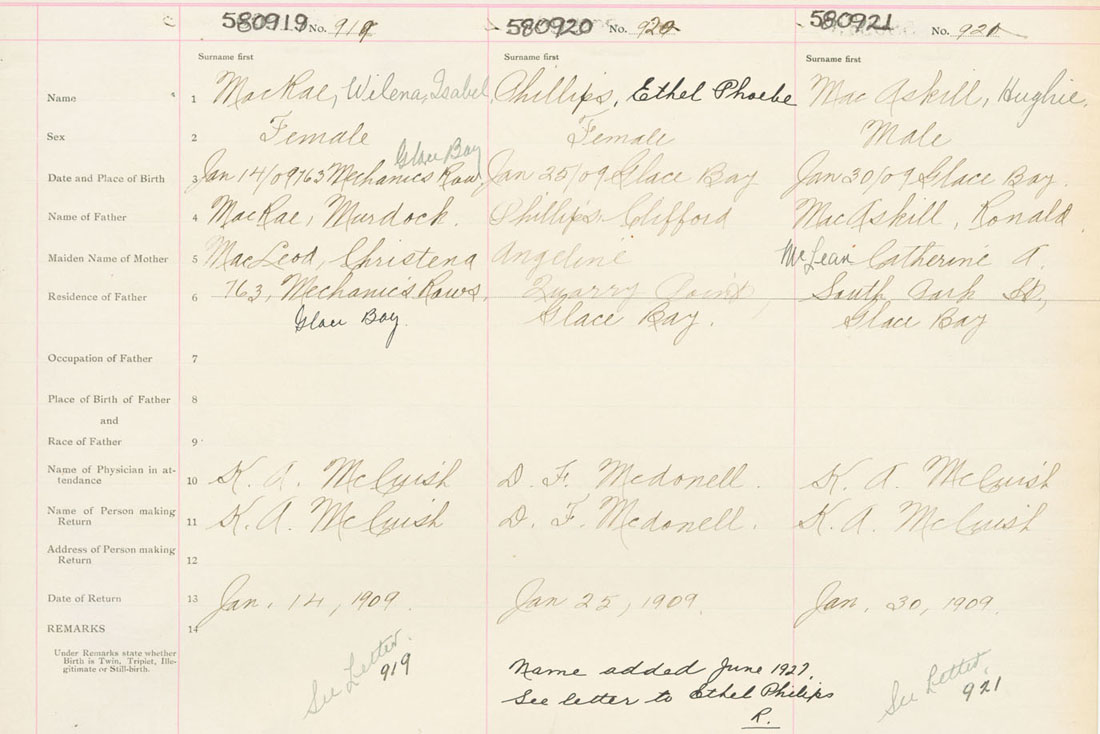 580919 No. 919 580920 No. 920 580921 No. 921
Surname first Surname first Surname first
Name 1 MacRae, Wilena, Isabel Phillips, Ethel Phoebe MacAskill, Hughie.
Sex 2 Female Female Male
Glace Bay
Date and Place of Birth 3 Jan 14/09 763 Mechanics Row Jan 25/09 Glace Bay Jan 30/09 Glace Bay.
Name of Father 4 MacRae, Murdock. Phillips Clifford MacAskill, Ronald.
Maiden Name of Mother 5 MacLeod, Christena Angeline McLean Catherine A.
Residence of Father 6 763, Mechanics Rows, Quarry Point, South Park St.,
Glace Bay. Glace Bay. Glace Bay
Occupation of Father 7
Place of Birth of Father 8
and
Race of Father 9
Name of Physician in at-
tendance 10 K. A. McCuish D. F. Mcdonell. K. A. McCuish
Name of Person making
Return 11 K. A. McCuish D. F. Mcdonell. K. A. McCuish
Address of Person making
Return 12
Date of Return 13 Jan. 14, 1909. Jan 25, 1909. Jan. 30, 1909.
REMARKS 14
Under Remarks state whether
Birth is Twin, Triplet, Ille-
gitimate or Still-birth.
See Letter.
919
Name added June 1927.
See letter to Ethel Philips
R.
See Letter.
921